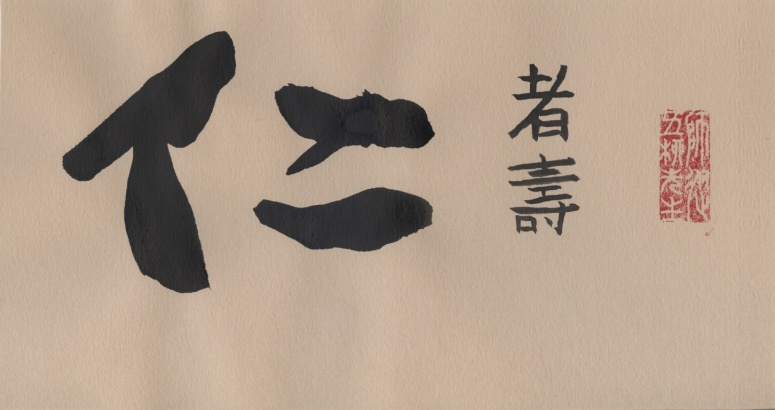 仁
者壽